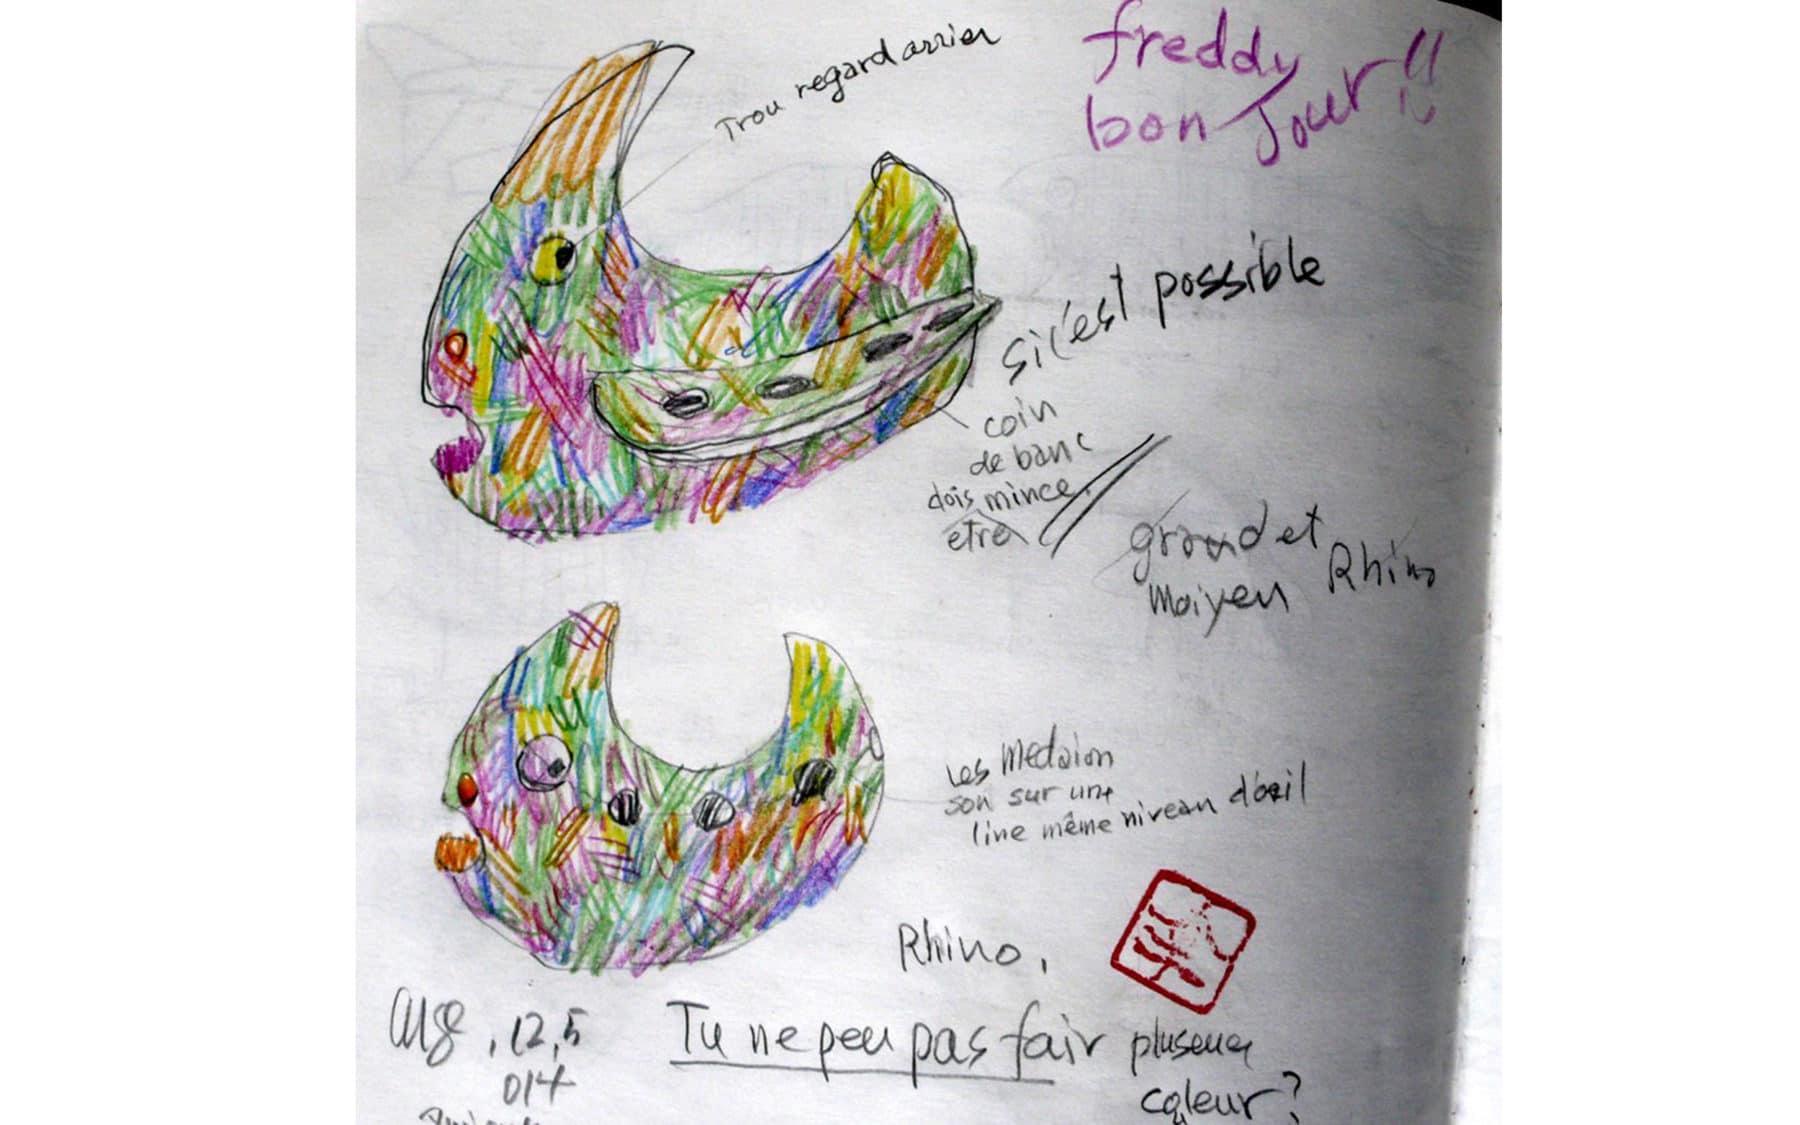 freddy
bon Jour!!
Trou regard arrier
Si c'est possible
coin
de banc
dois mince
etre
grand et
moiyen Rhino
Les Medaion
son sur une
line même niveau d'œil
Rhino,
Tu ne peu pas fair
coleur?
,12,5
014